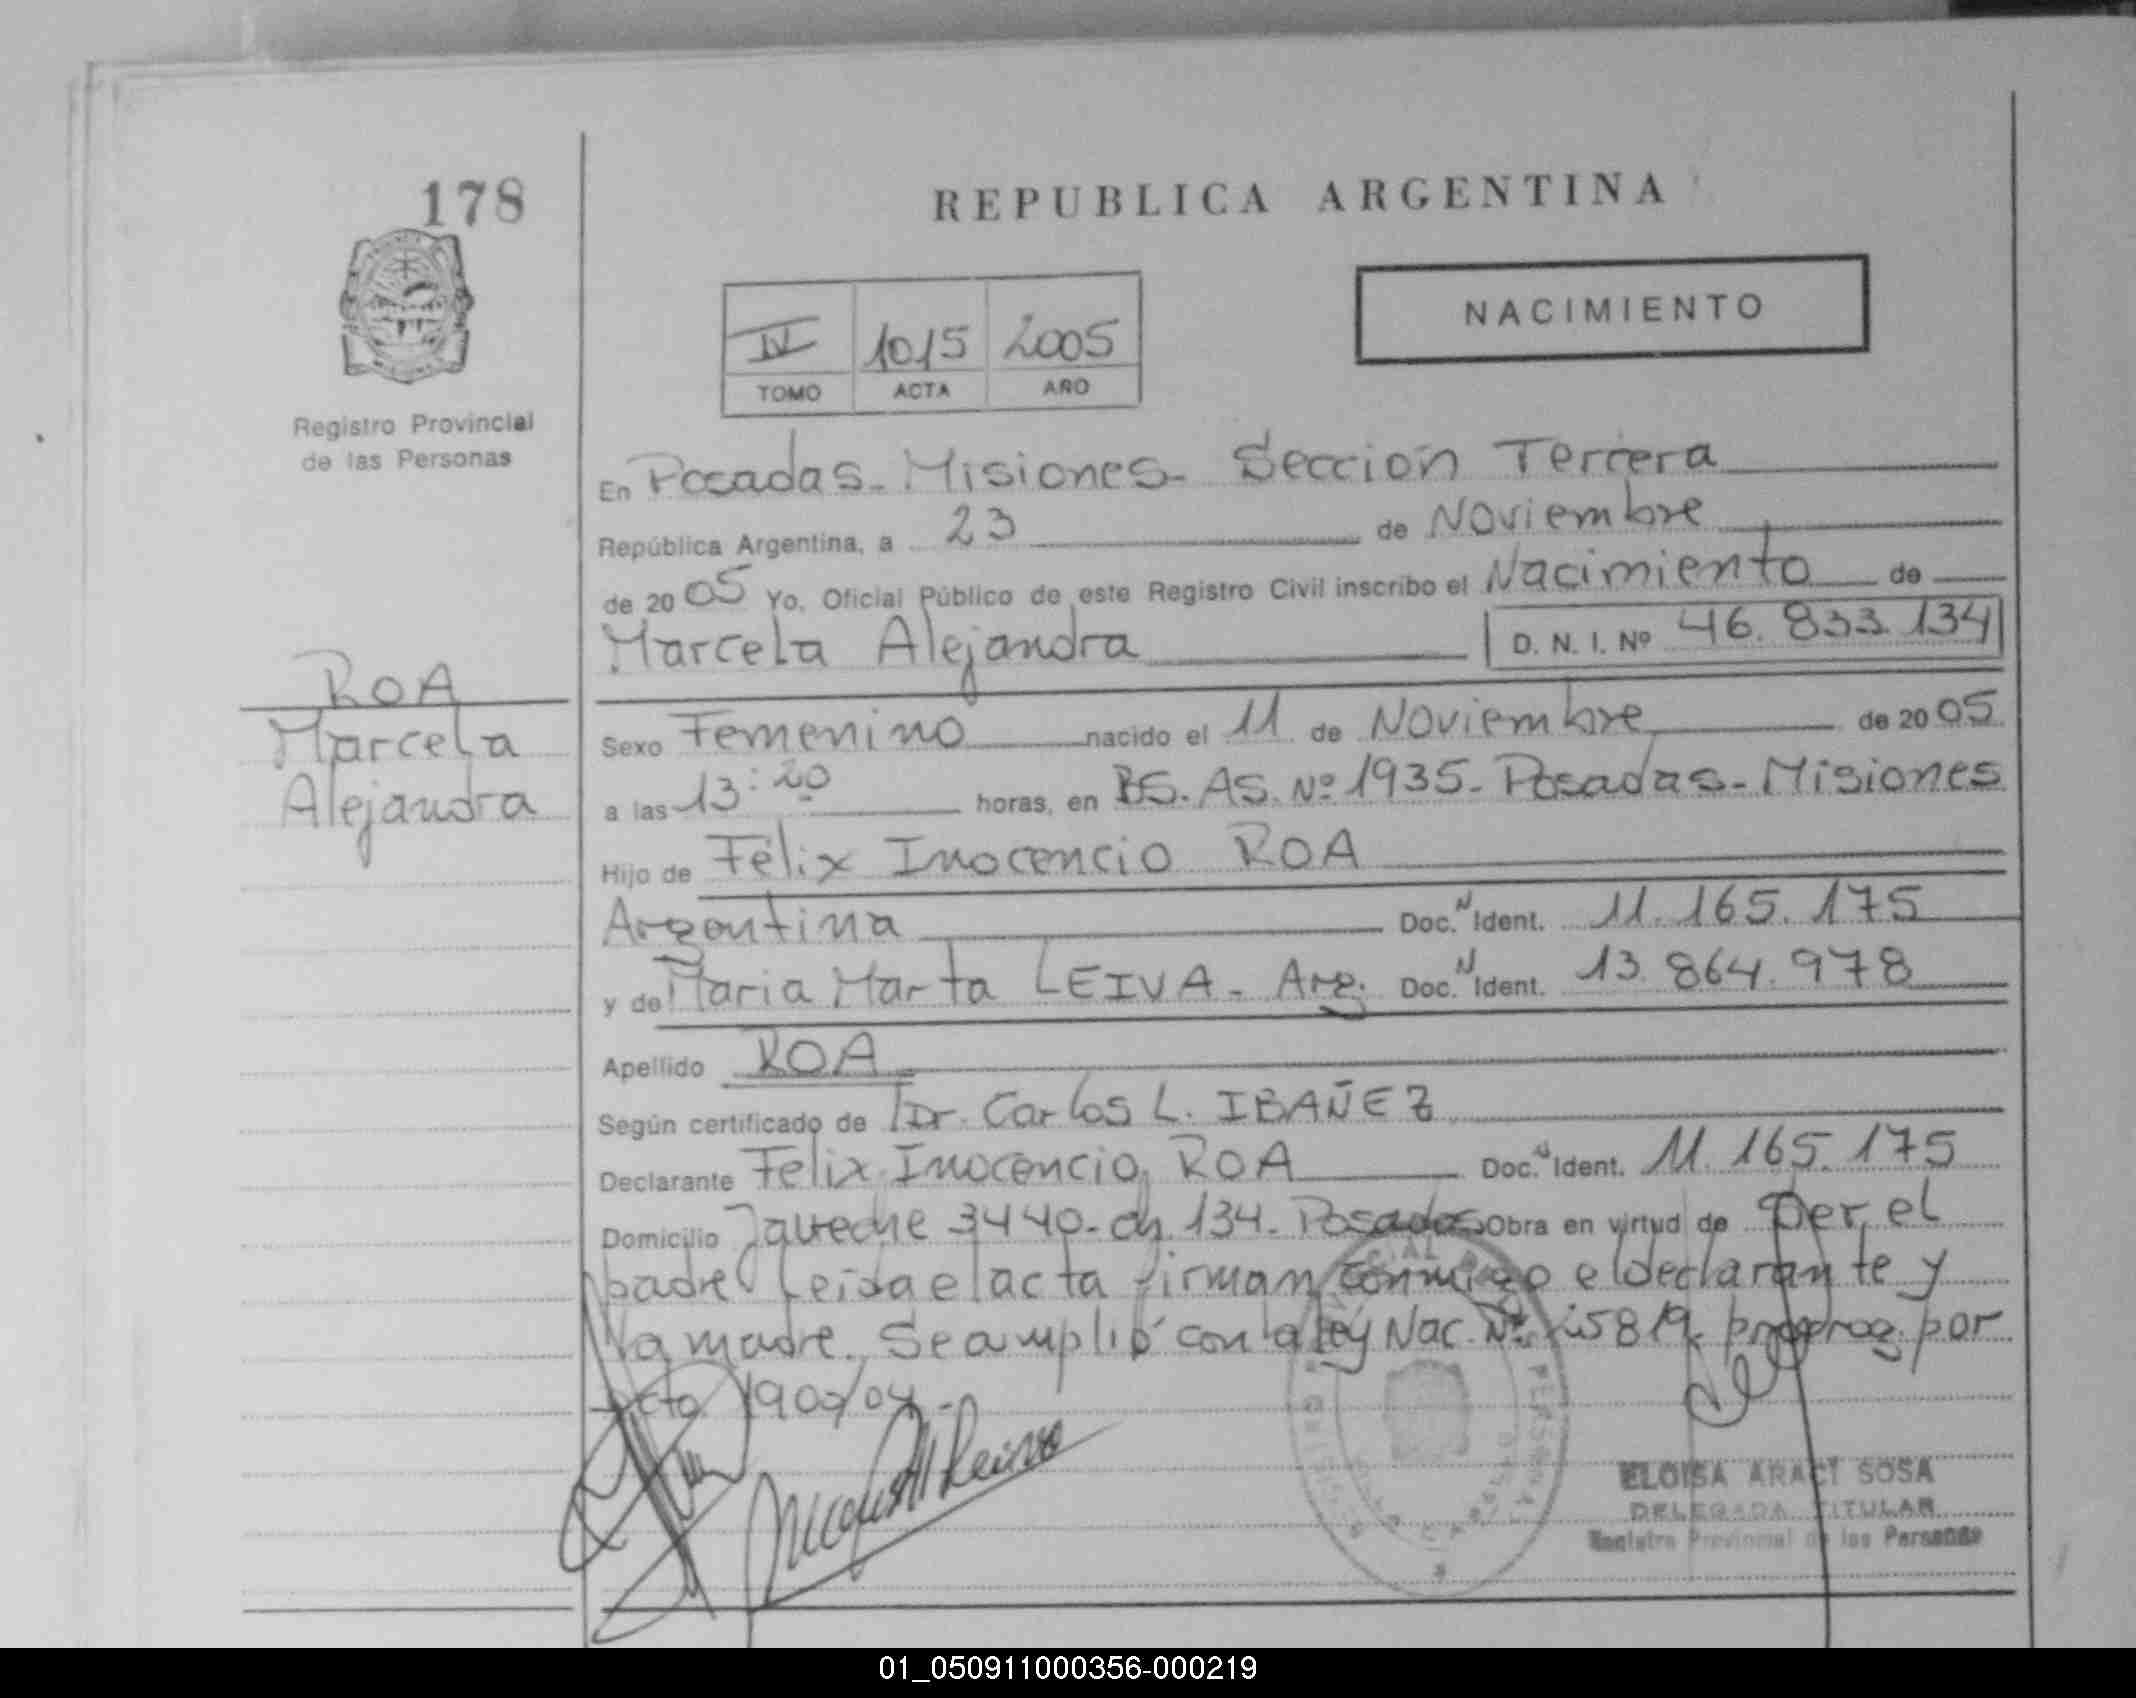 178
REPUBLICA ARGENTINA
NACIMIENTO
IV 1015 2005
TOMO ACTA AÑO
Registro Provincial
de las Personas
En Posadas - Misiones - Sección Tercera
República Argentina, a 23 de Noviembre
de 2005 Yo, Oficial Público de este Registro Civil inscribo el Nacimiento de
Marcela Alejandra D. N. I. Nº 46.833.134
ROA
Marcela
Alejandra
Sexo Femenino nacido el 11 de Noviembre de 2005
a las 13:20 horas, en BS. AS. Nº 1935 - Posadas - Misiones
Hijo de Félix Inocencio ROA
Argentina Doc. N Ident. 11.165.175
y de Maria Marta LEIVA - Arg. Doc. N Ident. 13.864.978
Apellido ROA
Según certificado de Dr. Carlos L. IBAÑEZ
Declarante Felix Inocencio ROA Doc. Ident. 11.165.175
Domicilio 3440 - ch. 134 - Posadas Obra en virtud de ser el
padre Leida el acta firman conmigo el declarante y
la madre. Se amplió con la ley Nac. Nº 25819 prorrog. por
ELOISA ARACI SOSA
DELEGADA TITULAR
Registro Provincial de las Personas
01_050911000356-000219